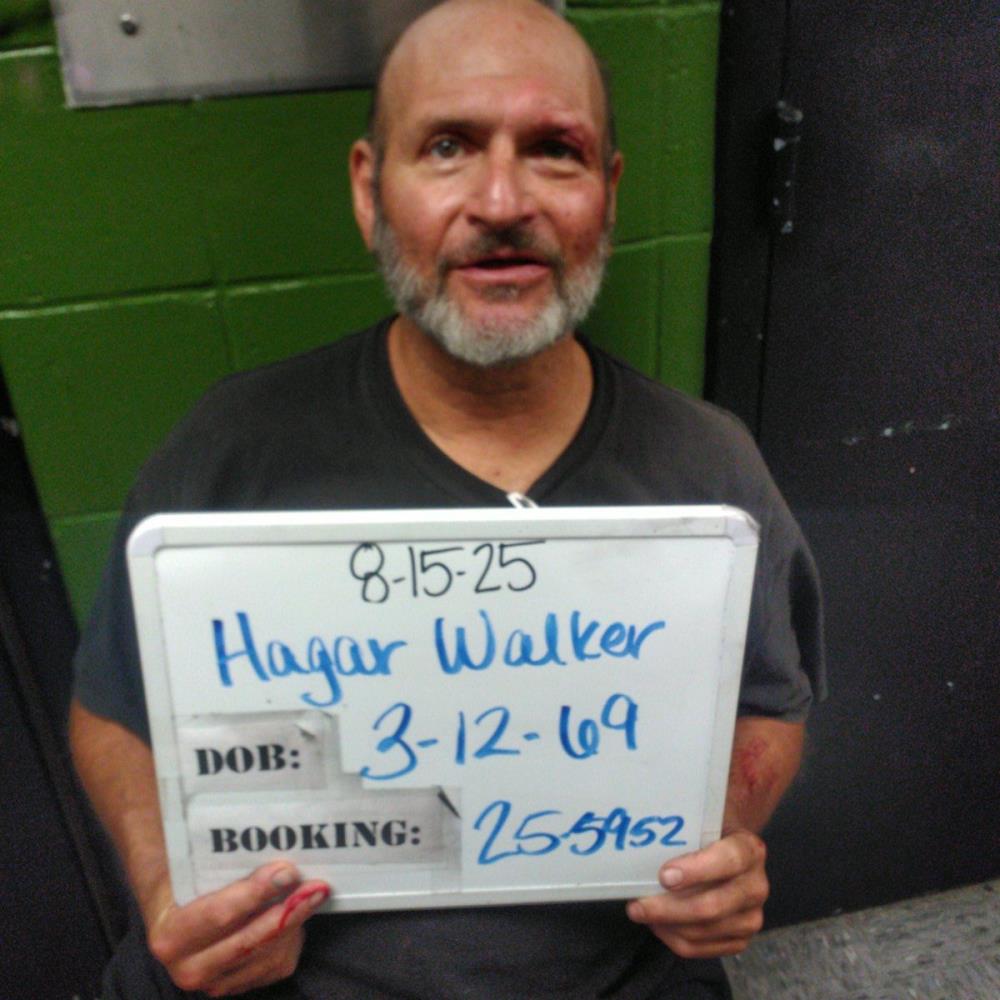 8-15-25
Hagar Walker
DOB: 3-12-69
BOOKING: 25-5952